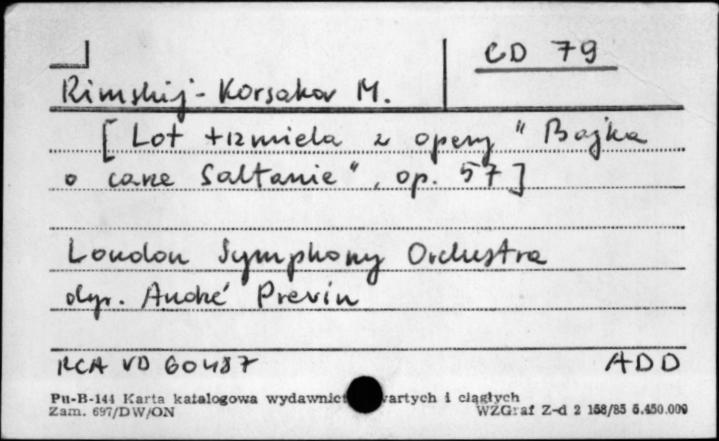 CD 79
Rimskij-Korsakov M.
[Lot trzmiela z opery "Bajka
o carze Sałtanie", op. 57]
London Symphony Orchestra
dyr. André Previn
RCA VD 60487
ADD
Pu-B-144 Karta katalogowa wydawnict wartych i ciągłych
Zam. 697/DW/ON
WZGraf Z-d 2 158/85 5.450.000